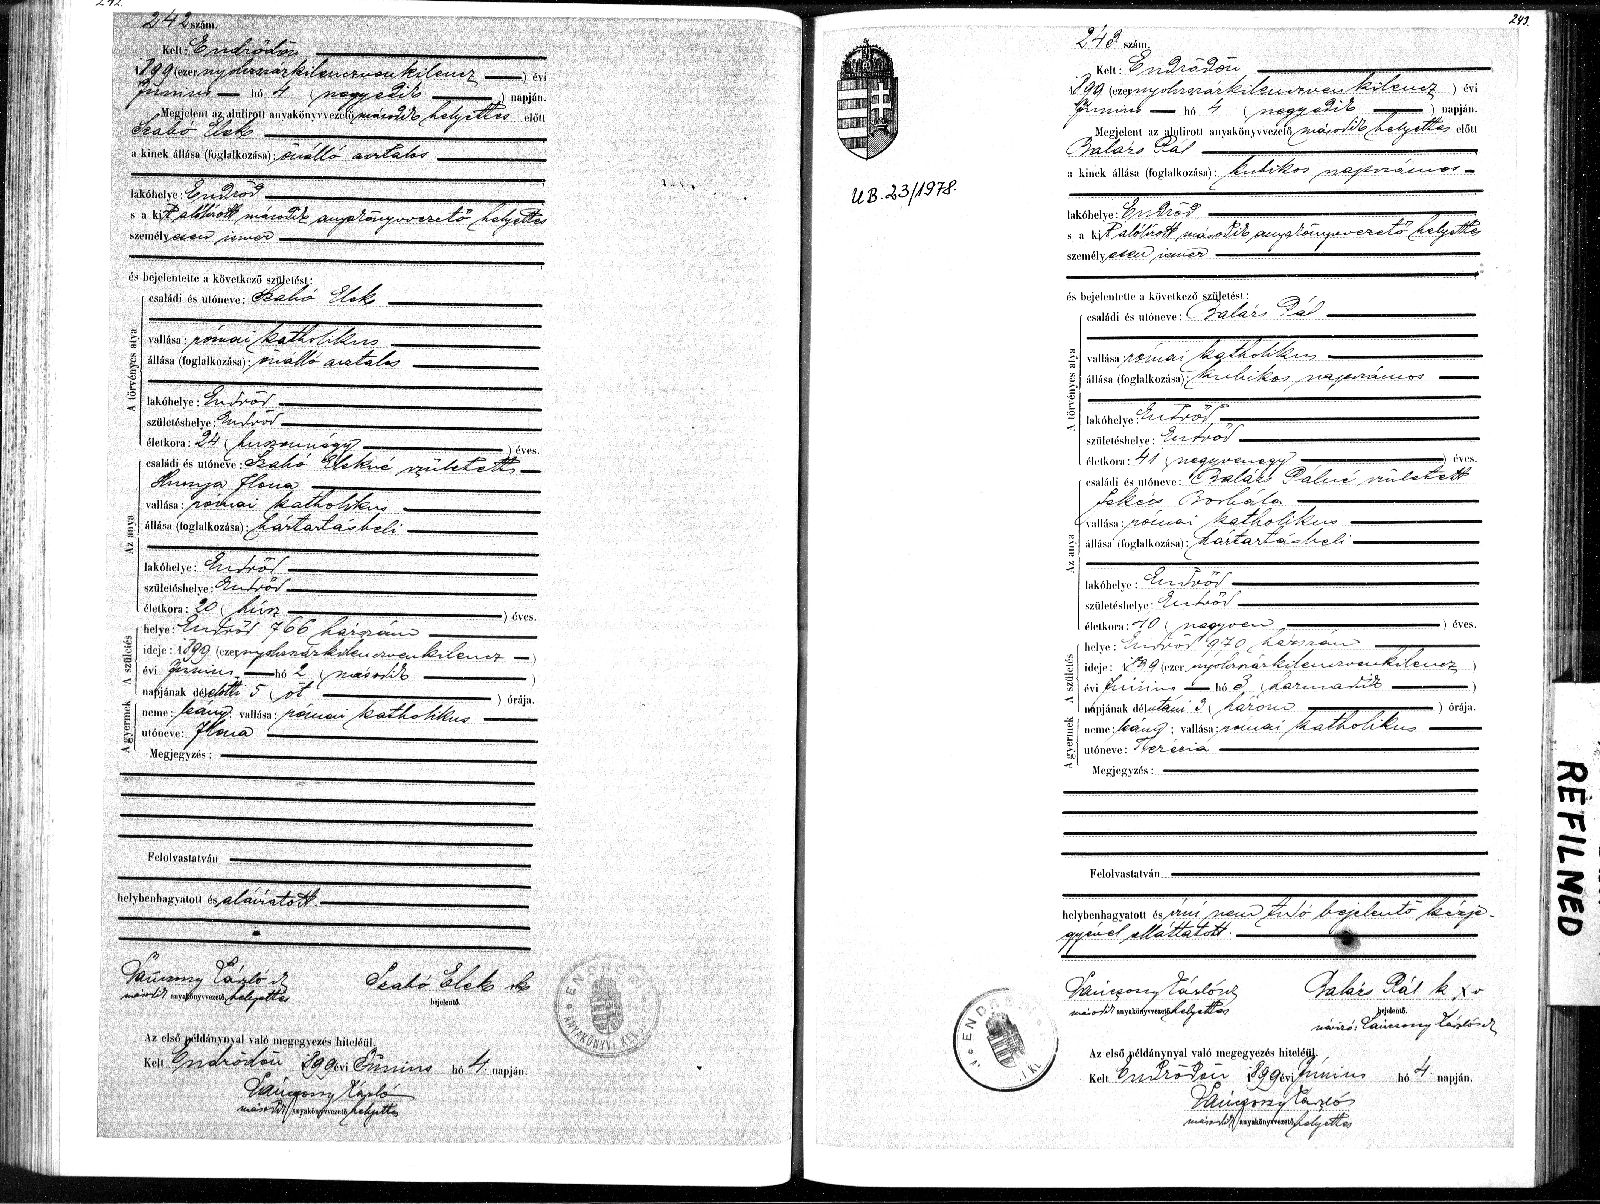 242.
242 szám.
Kelt: Endrődön
1899 (ezernyolczszázkilenczvenkilencz ) évi
Június hó 4 (negyedik ) napján.
Megjelent az alulirott anyakönyvvezető második helyettes előtt
Szabó Elek
a kinek állása (foglalkozása): önálló asztalos
lakóhelye: Endrőd
s a kit alólirott második anyakönyvvezető helyettes
személyesen ismer
és bejelentette a következő születést:
A törvényes atya
családi és utóneve: Szabó Elek
vallása: római katholikus
állása (foglalkozása): önálló asztalos
lakóhelye: Endrőd
születéshelye: Endrőd
életkora: 24 (huszonnégy ) éves.
Az anya
családi és utóneve: Szabó Elekné született
Hunya Ilona
vallása: római katholikus
állása (foglalkozása): háztartásbeli
lakóhelye: Endrőd
születéshelye: Endrőd
életkora: 20 (húsz ) éves.
A születés
helye: Endrőd 766 házszám
ideje: 1899 (ezernyolczszázkilenczvenkilencz )
évi Június hó 2 (második )
napjának délelőtti 5 (öt ) órája.
A gyermek
neme: leány; vallása: római katholikus
utóneve: Ilona
Megjegyzés:
Felolvastatván
helybenhagyatott és aláiratott.
László szk
második anyakönyvvezető helyettes
Szabó Elek sk
bejelentő.
ENDRŐD
ANYAKÖNYVI KER.
Az első példánynyal való megegyezés hiteléül.
Kelt Endrődön 1899 évi Június hó 4 napján.
László
második anyakönyvvezető helyettes
243.
243 szám.
U B. 23/1978.
Kelt: Endrődön
1899 (ezernyolczszázkilenczvenkilencz ) évi
Június hó 4 (negyedik ) napján.
Megjelent az alulirott anyakönyvvezető második helyettes előtt
Balázs Pál
a kinek állása (foglalkozása): kubikos napszámos
lakóhelye: Endrőd
s a kit alólirott második anyakönyvvezető helyettes
személyesen ismer
és bejelentette a következő születést:
A törvényes atya
családi és utóneve: Balázs Pál
vallása: római katholikus
állása (foglalkozása): kubikos napszámos
lakóhelye: Endrőd
születéshelye: Endrőd
életkora: 41 (negyvenegy ) éves.
Az anya
családi és utóneve: Balázs Pálné született
Borbála
vallása: római katholikus
állása (foglalkozása): háztartásbeli
lakóhelye: Endrőd
születéshelye: Endrőd
életkora: 40 (negyven ) éves.
A születés
helye: Endrőd 970 házszám
ideje: 1899 (ezernyolczszázkilenczvenkilencz )
évi Június hó 3 (harmadik )
napjának délutáni 3 (három ) órája.
A gyermek
neme: leány; vallása: római katholikus
utóneve: Terézia
Megjegyzés:
Felolvastatván
helybenhagyatott és írni nem tudó bejelentő kézje-
gyével elláttatott.
László szk
második anyakönyvvezető helyettes
Balázs Pál k x v
bejelentő.
névíró: László szk
ENDRŐD
I KE
Az első példánynyal való megegyezés hiteléül.
Kelt Endrődön 1899 évi Június hó 4 napján.
László
második anyakönyvvezető helyettes
REFILMED